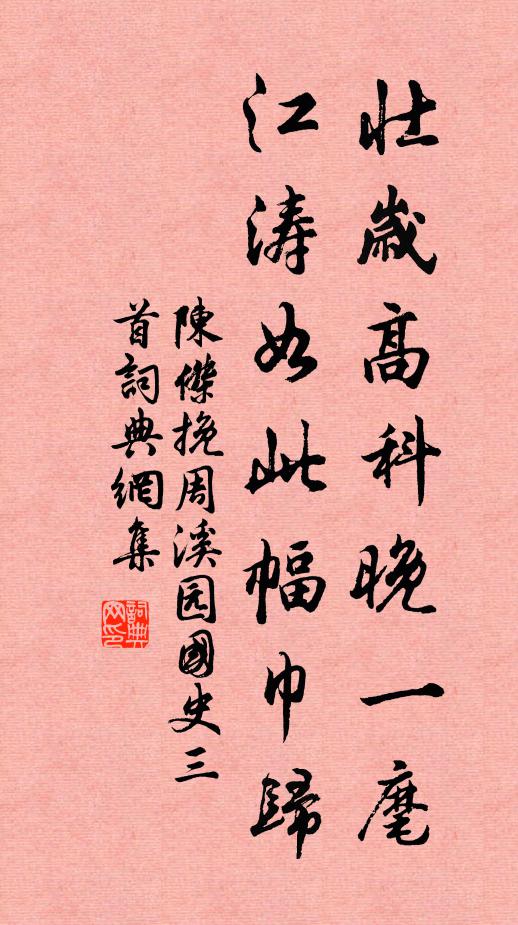 壮歲高科晚一麾
江濤如此幅巾歸
陳傑挽周溪园國史三
首詞典網集
詞典網印